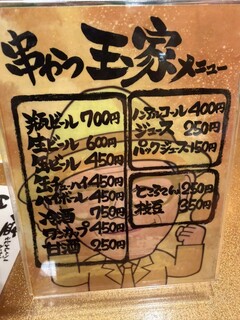 串かつ 玉家 メニュー
瓶ビール 700円
生ビール 600円
缶ビール 450円
生チューハイ 450円
ハイボール 450円
冷酒 750円
ワンカップ 450円
甘酒 250円
ノンアルコール 400円
ジュース 250円
パックジュース 150円
ところてん 250円
枝豆 350円